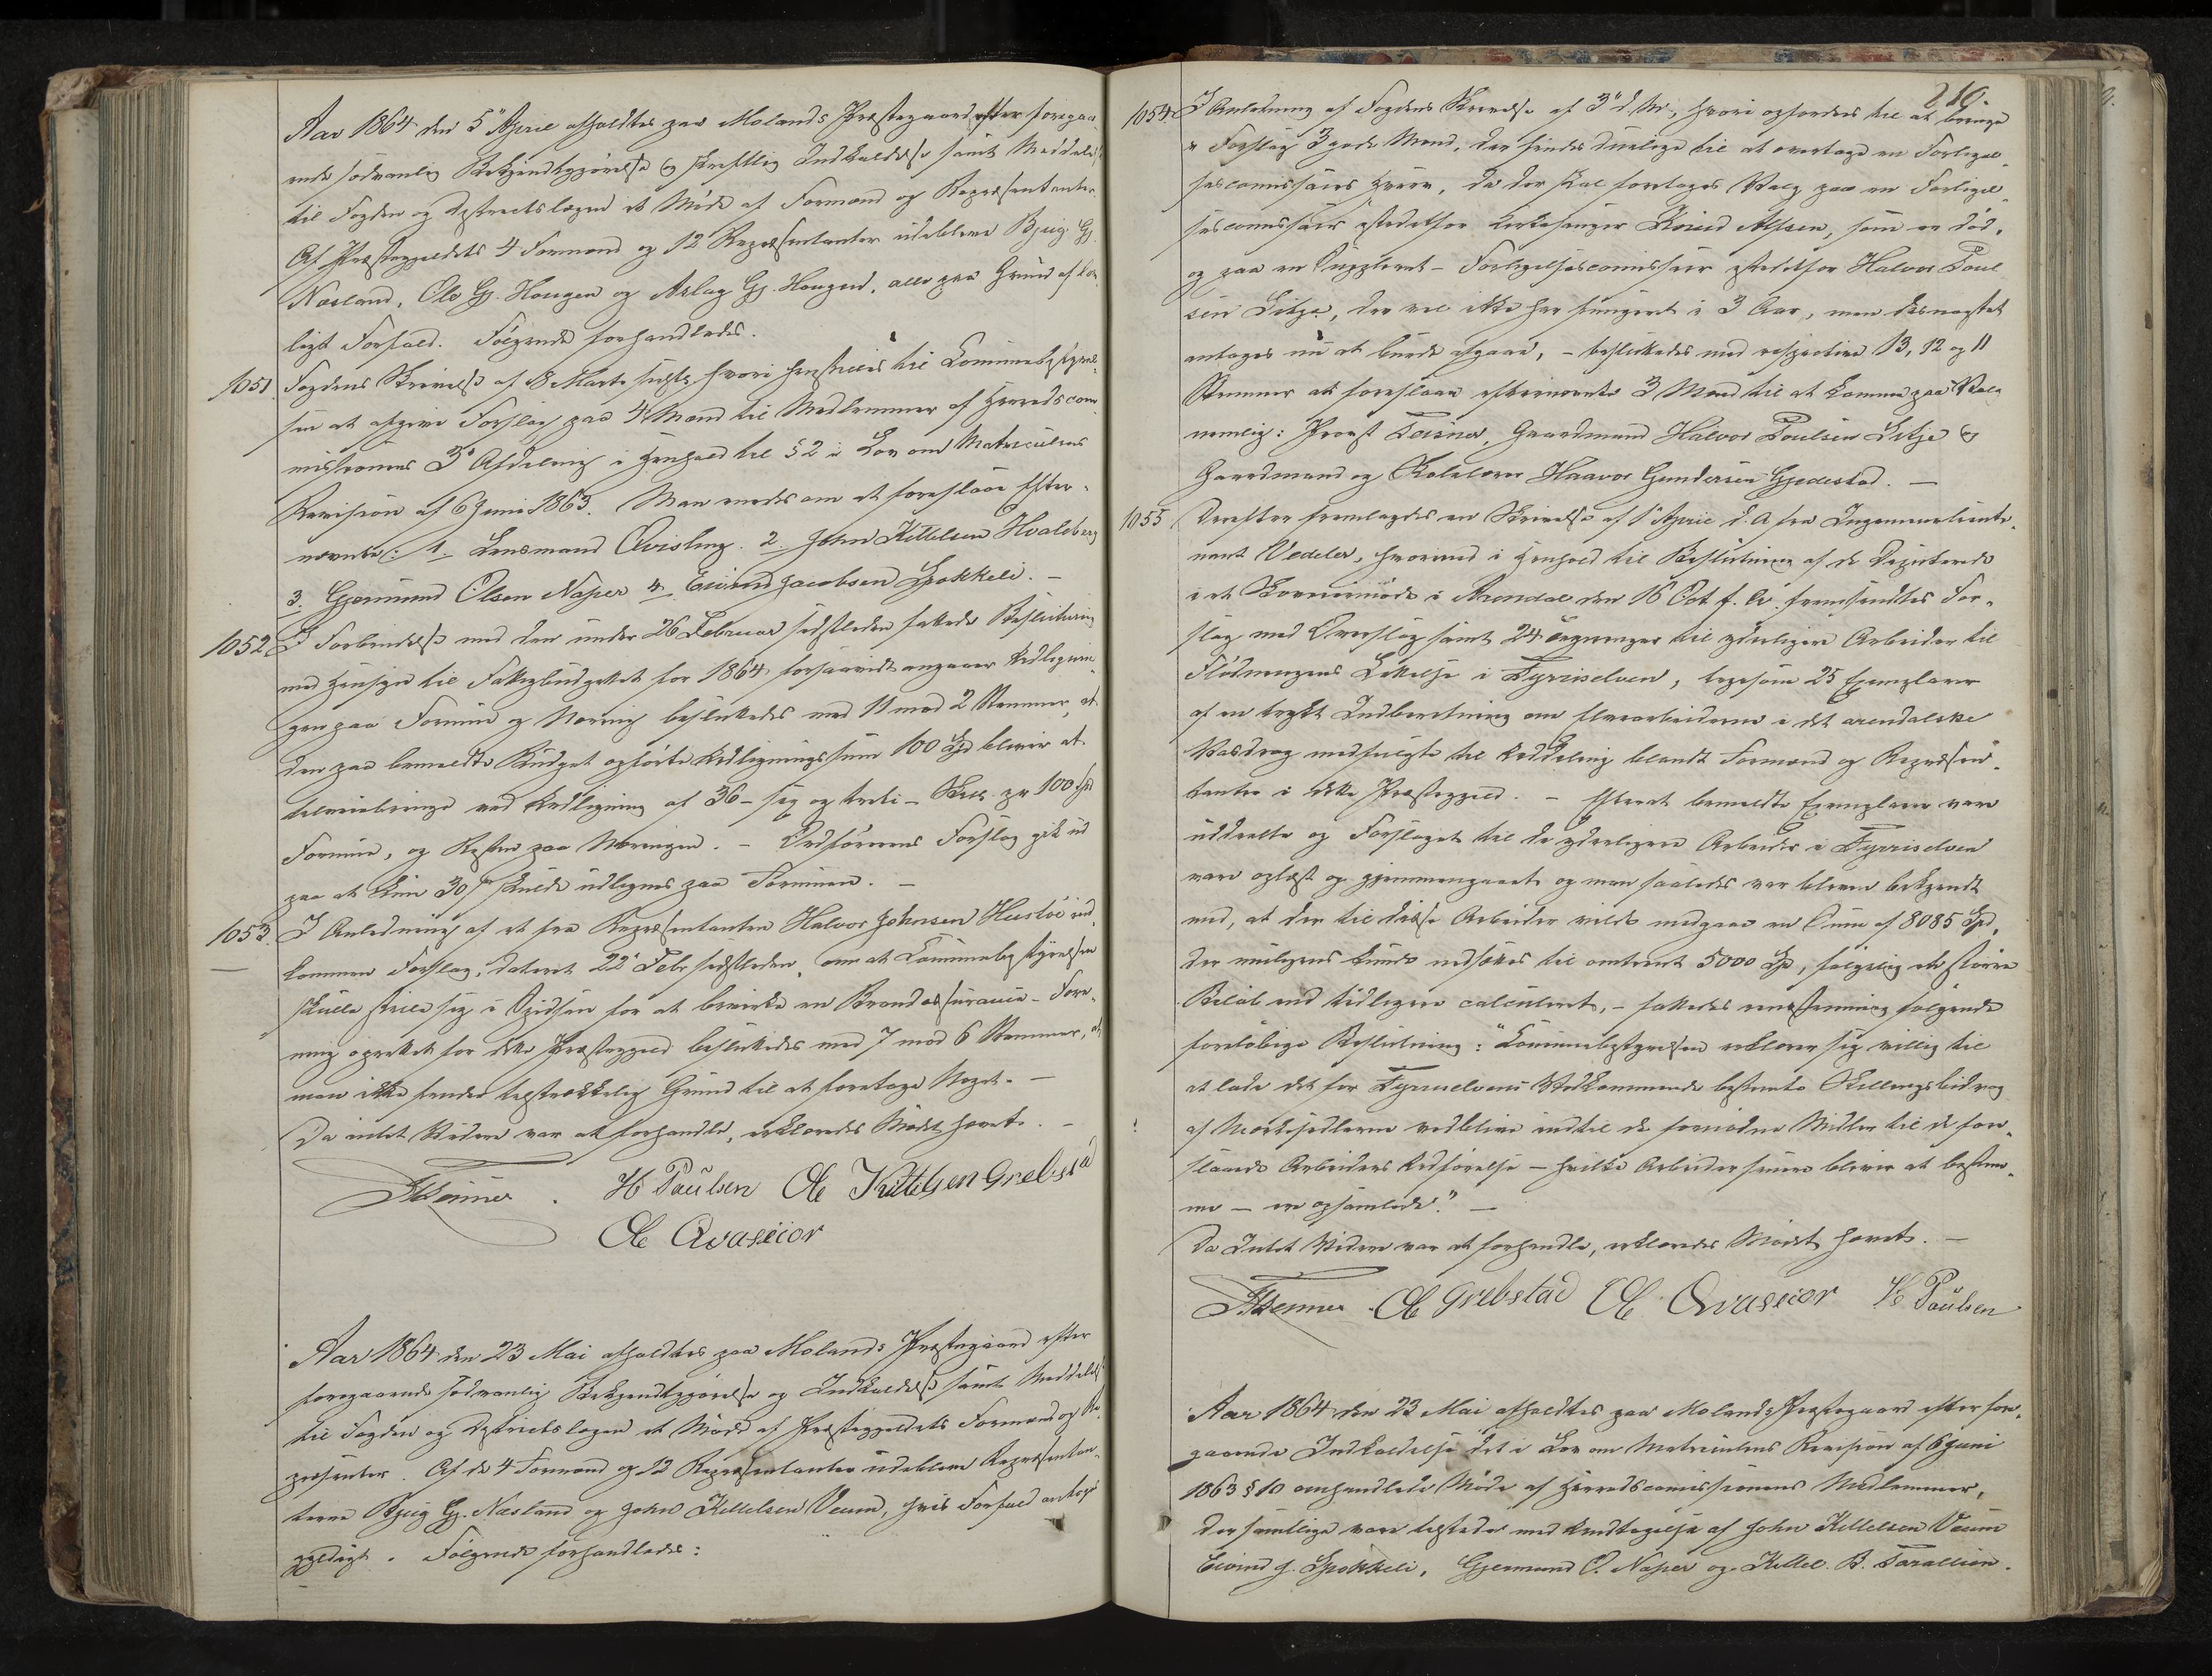 Aar 1864 den 5te April afholdtes paa Molands Præstegaard efter foregaa-
ende sædvanlig Bekjendtgjørelse og skriftlig Indkaldelse samt Meddelelse
til Fogden og Distrectslægen et Møde af Formænd og Repræsentanter.
Af Præstegjeldets 4 Formænd og 12 Repræsentanter udebleve Bjug Gj.
Næsland, Ole Gj. Haugen og Aslag Gj. Haugen, alle paa Grund af lov-
ligt Forfald. Følgende forhandledes.
1051. Fogdens Skrivelse af 8 Marts sidstl. hvori henstilles til Communebestyrel-
sen at afgive Forslag paa 4 Mænd til Medlemmer af Herredscom-
missionens 3die Afdeling i Henhold til § 2 i Lov om Matriculens
Revision af 6 Juni 1863. Man enedes om at foreslaae Efter-
nævnte: 1. Lensmand Qvisling. 2. John Kittelsen Hvaleberg
3. Gjermund Olsen Naper 4. Eivind Jacobsen Spokkeli. –
1052 I Forbindelse med den under 26 Februar sidstleden fattede Beslutning
med Hensyn til Fattigbudgettet for 1864, forsaavidt angaaer Udlignin-
gen paa Formue og Næring besluttedes med 11 mod 2 Stemmer, at
den paa bemeldte Budget opførte Udligningssum 100 Spd bliver at
tilveiebringe ved Udligning af 36 – sex og treti – Skill. pr 100 Spd
Formue, og Resten paa Næringen. – Ordførerens Forslag gik ud
paa at kun 30 s skulde udlignes paa Formuen. –
1053. I Anledning af et fra Repræsentanten Halvor Johnsen Hustøl ind-
kommen Forslag, dateret 22de Febr sidstleden, om at Communebestyrelsen
skulle stille sig i Spidsen for at bevirke en Brandassurance-Fore-
ning oprettet for dette Præstegjeld besluttedes med 7 mod 6 Stemmer, at
man ikke fandt tilstrækkelig Grund til at foretage Noget. –
Da intet Videre var at forhandle, erklæredes Mødet hævet. –
H Paulsen Ole Kittelsen Grebstad
Ole Qvaseior
Aar 1864 den 23 Mai afholdtes paa Molands Præstegaard efter
foregaaende sædvanlig Bekjendtgjørelse og Indkaldelse samt Meddelelse
til Fogden og Distrietslægen et Møde af Præstegjeldets Formænd og Re-
præsenter. Af de 4 Formænd og 12 Repræsentanter udebleve Repræsentan-
terne Bjug Gj. Næsland og John Kittelsen Veum, hvis Forfald antoges
gyldigt. Følgende forhandledes:
210.
1054. I Anledning af Fogdens Skrivelse af 3die d. M., hvori opfordres til at bringe
i Forslag 3 gode Mænd, der findes duelige til at overtage en Forligel-
sescommissairs Hverv, da der skal foretages Valg paa en Forligel-
sescommissair istedetfor Kirkesanger Knud Alfsen, som er død,
og paa en Suppleant-Forligelsescommissair istedetfor Halvor Poul-
sen Litze, der vel ikke har fungeret i 3 Aar, men desuagtet
antages nu at burde afgaae, – besluttedes med respective 13, 12 og 11
Stemmer at foreslaae efternævnte 3 Mænd til at komme paa Valg
nemlig: Provst Teisner, Gaardmand Halvor Poulsen Litze og
Gaardmand og Skolelærer Haavor Gundersen Gjedestad. –
1055 Derefter fremlagdes en Skrivelse af 1ste April d. A fra Ingenieurlieute-
nant Vedeler, hvorved i Henhold til Beslutning af de Deputerede
i et Skoveiermøde i Arendal den 16 Oct f. A. fremsendtes For-
slag med Overslag samt 24 Tegninger til yderligere Arbeider til
Flødningens Lettelse i Fyriselven, ligesom 25 Exemplarer
af en trykt Indberetning om Elvearbeiderne i det arendalske
Vasdrag medfulgte til Uddeling blandt Formænd og Repræsen-
tanter i dette Præstegjeld. – Efterat bemeldte Exemplarer vare
uddeelte og Forslaget til de yderligere Arbeider i Fyriselven
vare oplæst og gjennemgaaet og man saaledes var bleven bekjendt
med, at der til disse Arbeider vilde medgaae en Sum af 8085 Spd,
der muligens kunde nedsættes til omtrent 5000 Spd, følgelig et større
Beløb end tidligere calculeret, – fattedes eenstemmig følgende
foreløbige Beslutning: "Communebestyrelsen erklærer sig villig til
at lade det for Fyriselvens Vedkommende bestemte Skillingsbidrag
af Mærkesedlerne vedblive indtil de fornødne Midler til de fore-
slaaede Arbeiders Udførelse – hvilke Arbeider senere bliver at bestem-
me – ere opsamlede." –
Da Intet Videre var at forhandle, erklæredes Mødet hævet. –
Ole Grebstad Ole Qvaseior H Paulsen
Aar 1864 den 23 Mai afholdtes paa Molands Præstegaard efter fore-
gaaende Indkaldelse det i Lov om Matriculens Revision af 6 Juni
1863 § 10 omhandlede Møde af Herredscommissionens Medlemmer,
der samtlige vare tilstede med Undtagelse af John Kittelsen Veum
Eivind J. Spokkeli, Gjermund O. Naper og Kittel B. Taraldlien.